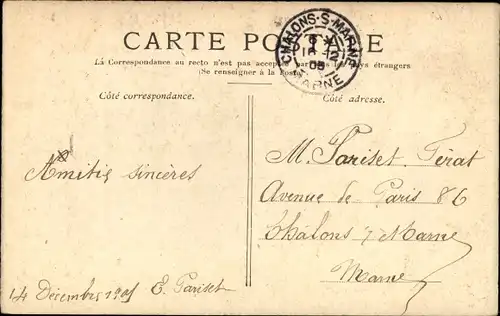 CARTE POSTALE
La Correspondance au recto n'est pas acceptée par tous les pays étrangers
(Se renseigner à la Poste)
CHALONS-S-MARNE
MARNE
Côté correspondance.
Côté adresse.
Amitiés sincères
M. Pariset. Férat
Avenue de Paris 86
Châlons s/ Marne
Marne
14 Décembre 1905 E. Pariset